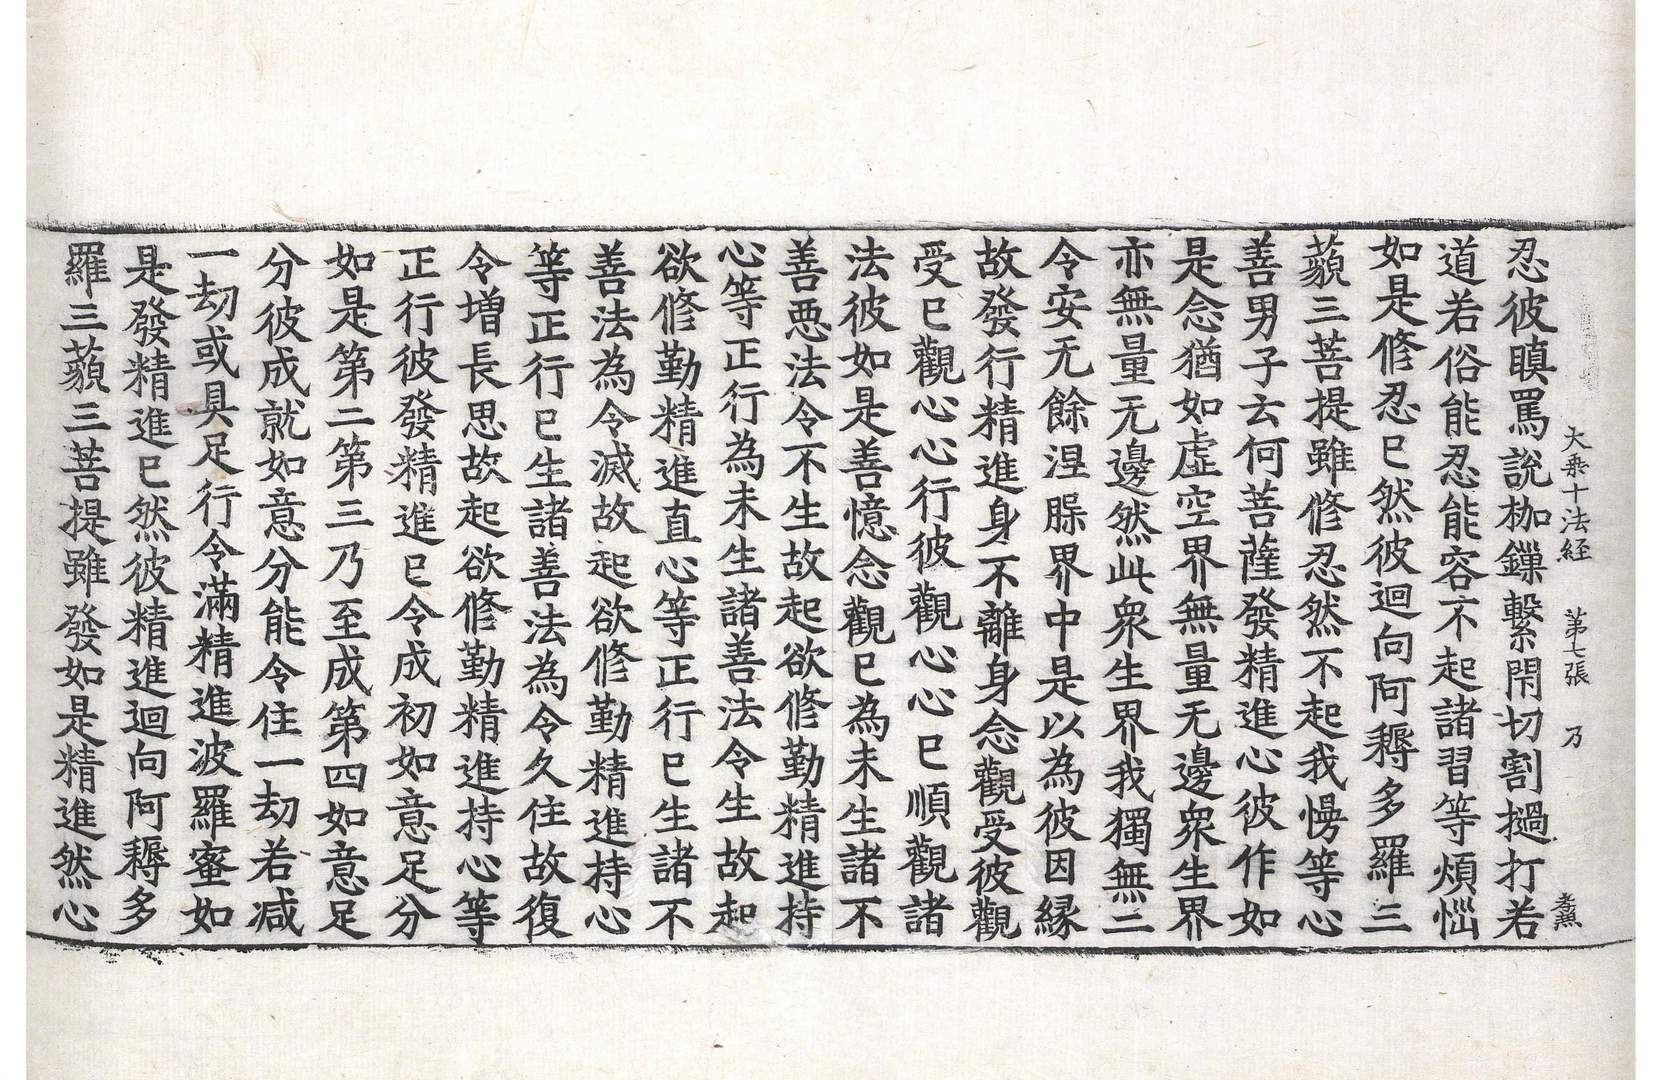 大乘十法経　第七張　乃
忍彼瞋罵說枷鏁繫閇切割撾打若
道若俗能忍能容不起諸習等煩惱
如是修忍已然彼迴向阿耨多羅三
藐三菩提雖修忍然不起我慢等心
善男子云何菩薩發精進心彼作如
是念猶如虛空界無量无邊衆生界
亦無量无邊然此衆生界我獨無二
令安无餘涅槃界中是以為彼因縁
故發行精進身不離身念觀受彼觀
受已觀心心行彼觀心心已順觀諸
法彼如是善憶念觀已為未生諸不
善惡法令不生故起欲修勤精進持
心等正行為未生諸善法令生故起
欲修勤精進直心等正行已生諸不
善法為令滅故起欲修勤精進持心
等正行已生諸善法為令久住故復
令增長思故起欲修勤精進持心等
正行彼發精進已令成初如意足分
如是第二第三乃至成第四如意足
分彼成就如意分能令住一劫若减
一劫或具足行令滿精進波羅蜜如
是發精進已然彼精進迴向阿耨多
羅三藐三菩提雖發如是精進然心